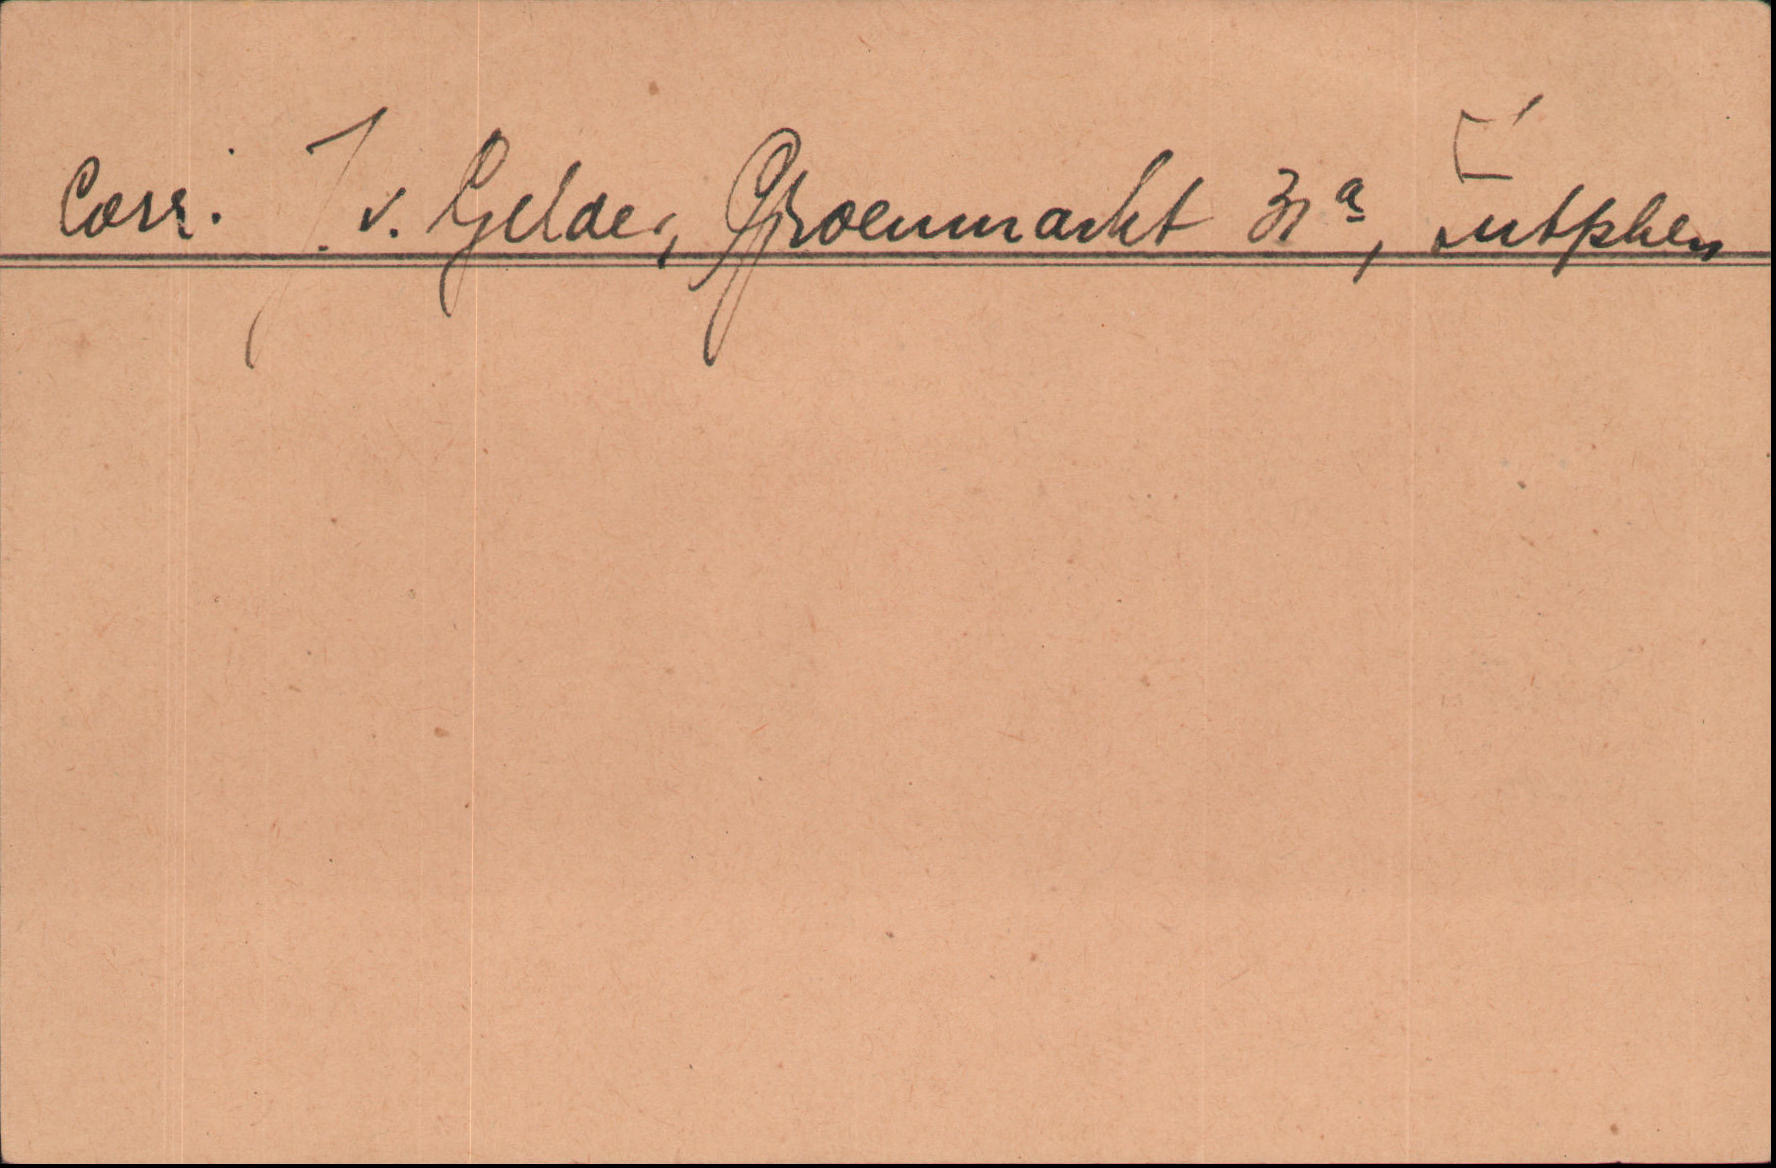 Corr. J. v. Gelder, Groenmarkt 31a, Zutphen